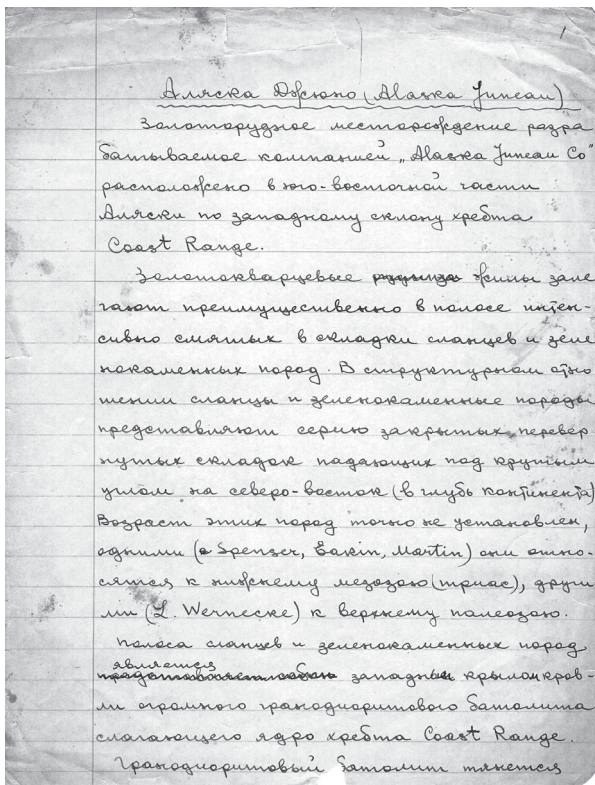 1
Аляска Джюно (Alaska Juneau)
Золоторудное месторождение разра
батываемое компанией „Alaska Juneau Co"
расположено в юго-восточной части
Аляски по западному склону хребта
Coast Range.
Золотокварцевые жилы зале
гают преимущественно в полосе интен-
сивно смятых в складки сланцев и зеле
нокаменных пород. В структурном отно
шении сланцы и зеленокаменные породы
представляют серию закрытых перевер
нутых складок падающих под крутым
углом на северо-восток (в глубь континента)
Возраст этих пород точно не установлен,
одними (Spenser, Eakin, Martin) они отно-
сятся к нижнему мезозою (триас), други
ми (L. Wernecke) к верхнему палеозою.
Полоса сланцев и зеленокаменных пород
является
западным крылом кров-
ли огромного гранодиоритового батолита
слагающего ядро хребта Coast Range.
Гранодиоритовый батолит тянется